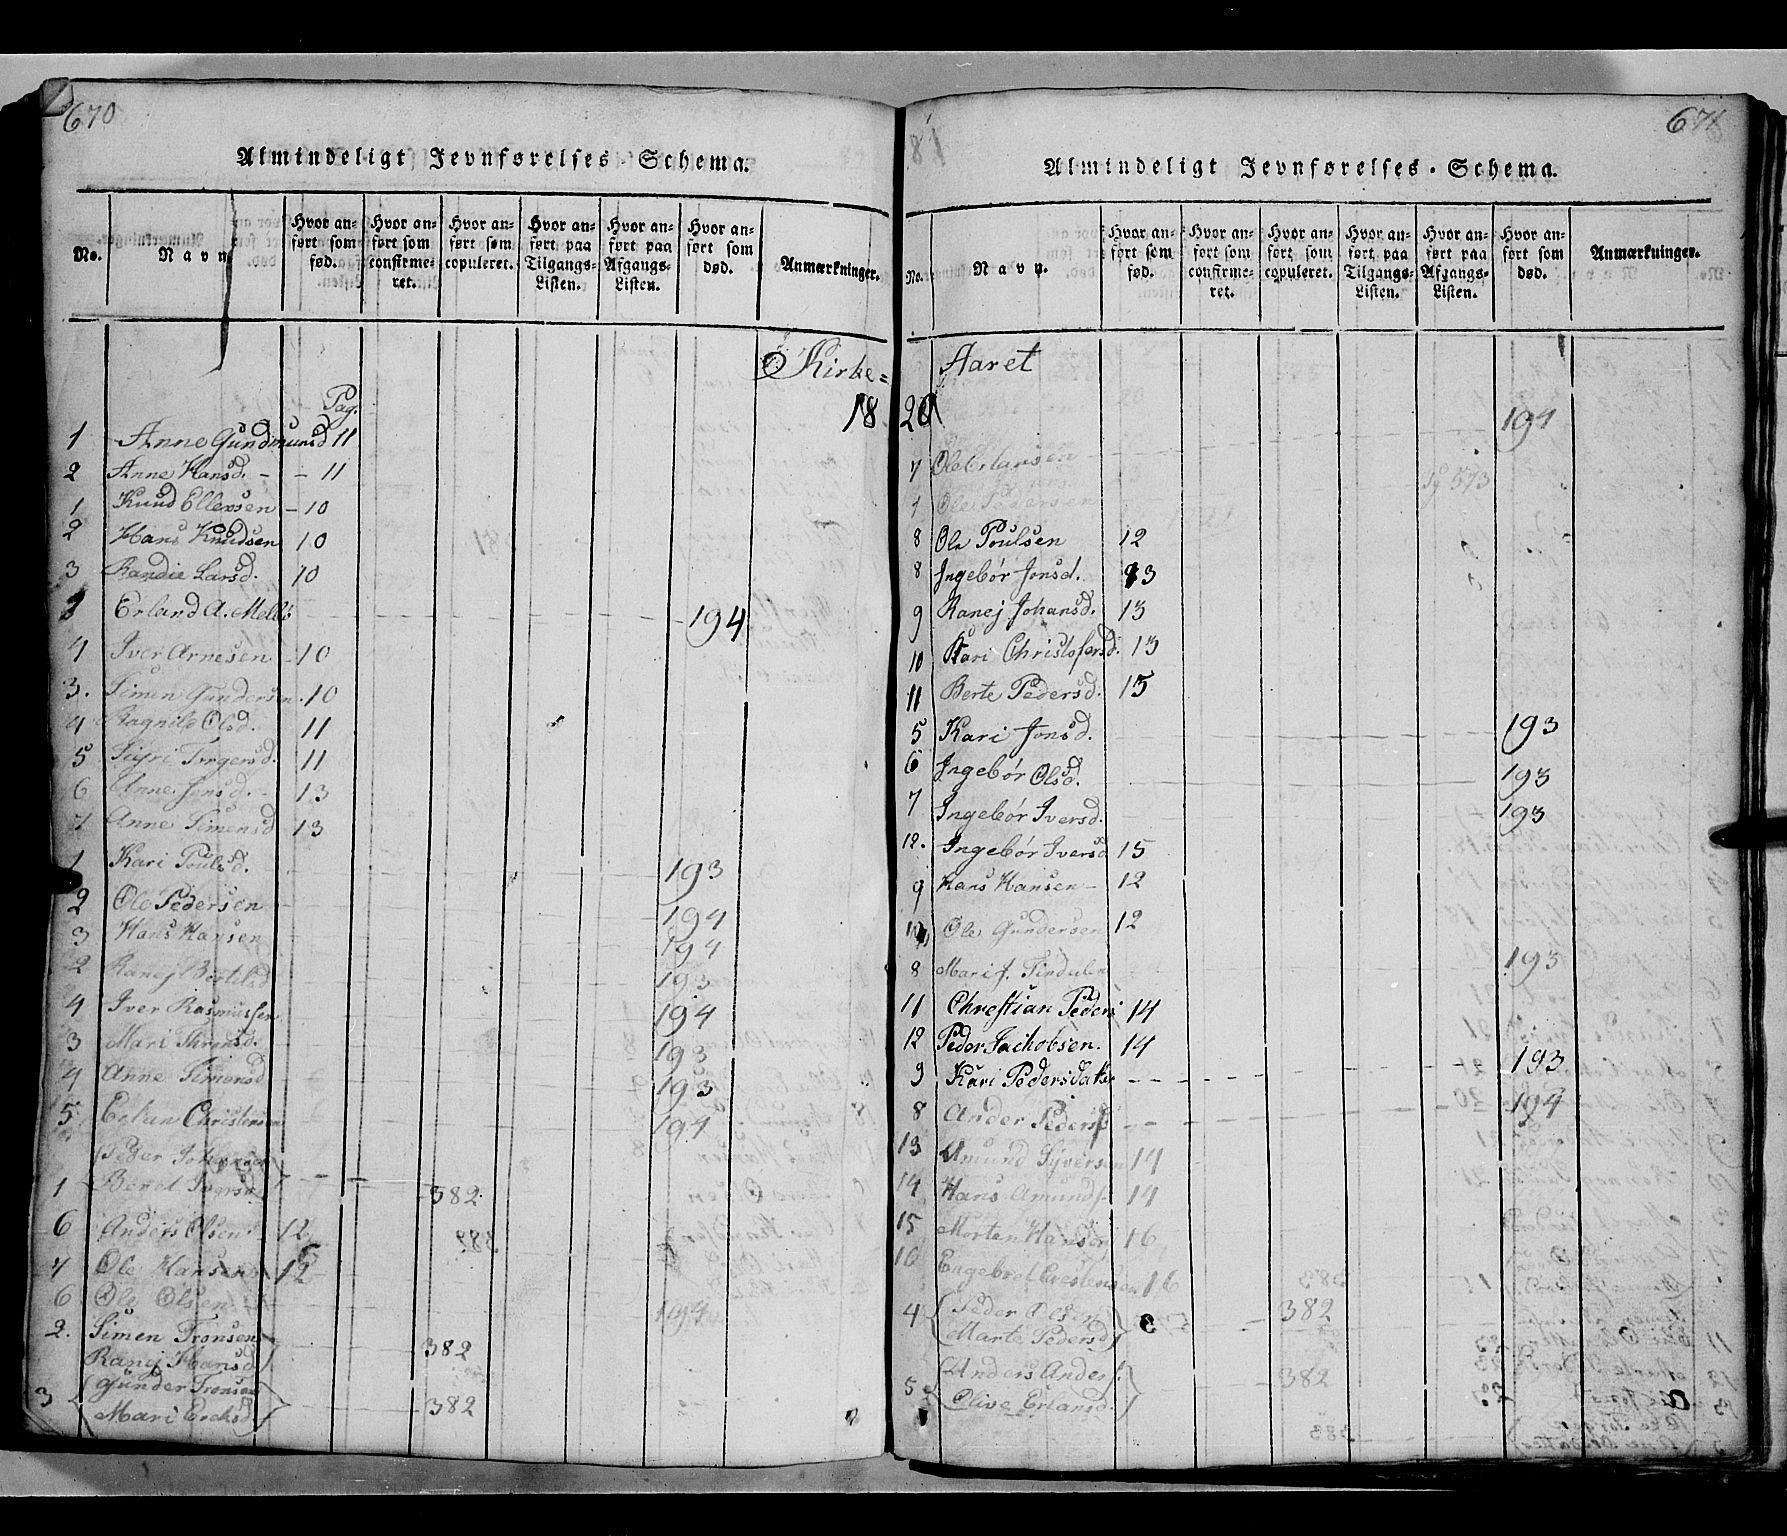 670
Almindeligt Jevnførelses-Schema.
No. Navn. Hvor anført som født. Hvor anført som confirmeret. Hvor anført som copuleret. Hvor anført paa Tilgangs-Listen. Hvor anført paa Afgangs-Listen. Hvor anført som død. Anmærkninger.
Kirke=
Pag. 18
1 Anne Gundmunsd 11
2 Anne Hansd. - - 11
1 Knud Ellensen - 10
2 Hans Knudsen 10
3 Randie Larsd. 10
1 Erland A. Melbs 194
4 Iver Arnesen - 10
3. Simen Gundersen. 10
4 Ragnild Olsd. 11
5 Sigri Torgersd. 11
6 Anne Jensd. - 13
7 Anne Simensd 13
1 Kari Poulsd. 193
2 Ole Pedersen 194
3 Hans Hansen 194
2 Ranej Bertelsd 193
4 Iver Rasmussen 194
3 Mari 193
4 Anne Simensd 193
5 Christensen 194
Peder Johannes
1 Beret Iversd. 382
6 Anders Olsen 12
7 Ole Hansen 12
6 Ole Olsen 194
2. Simen Tronsen
Ranej Hansd 382
Gunder Tronsen
3 Mari Ericksd. 382
671
Almindeligt Jevnførelses-Schema.
No. Navn. Hvor anført som født. Hvor anført som confirmeret. Hvor anført som copuleret. Hvor anført paa Tilgangs-Listen. Hvor anført paa Afgangs-Listen. Hvor anført som død. Anmærkninger.
Aaret
20
7 Ole Erlansen 194
1 Ole Pedersen 573
8 Ole Poulsen 12
8 Ingebór Jonsd. 13
9 Ranej Johansd. 13
10 Kari Christofersd. 13
11 Berte Pedersd. 15
5 Kari Jonsd. 193
6 Ingebór Olsd. 193
7 Ingebór Iversd. 193
12. Ingebór Iversd 15
9 Hans Hansen - 12
10 Ole Gundersen 12
8 Mari J. 193
11 Chrestian Peders 14
12 Peder Jachobsen. 14
9 Kari Pedersdatter 193
8 Ander Peders 194
13 Amund Syversen 14
14 Hans Amunds. 14
15 Morten Hansen 16
16 Engebret 16
4 Peder Olsen 382
Marte Pedersd
5 Anders Anders. 382
Olive Erlansd.